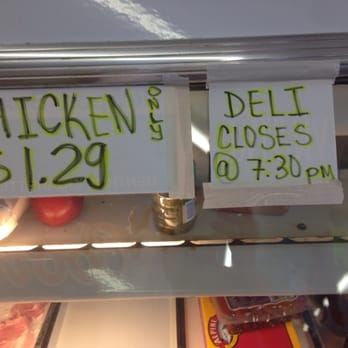 HICKEN
ONLY
$1.29
DELI
CLOSES
@ 7:30 PM
ALPINE